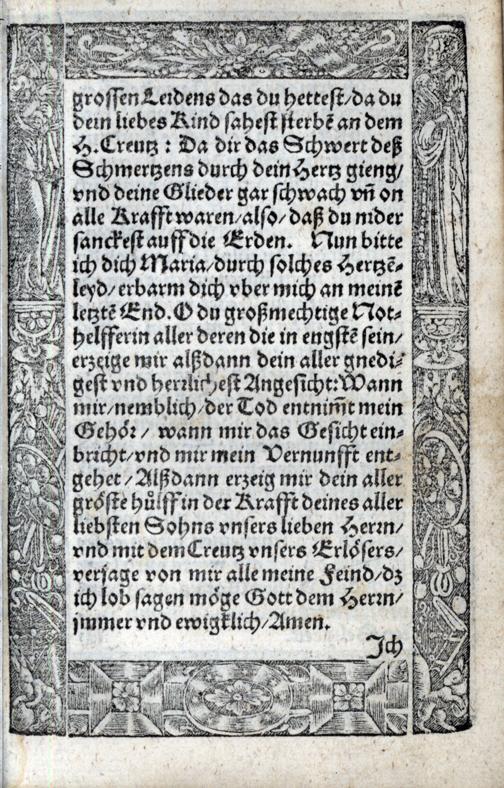 grossen Leidens das du hettest/da du
dein liebes Kind sahest sterbē an dem
H. Creutz : Da dir das Schwert deß
Schmertzens durch dein Hertz gieng/
vnd deine Glieder gar schwach vn̄ on
alle Krafft waren/also/daß du nider
sanckest auff die Erden. Nun bitte
ich dich Maria/durch solches Hertzē-
leyd/erbarm dich vber mich an meinē
letztē End. O du großmechtige Not-
helfferin aller deren die in engstē sein/
erzeige mir alßdann dein aller gnedi-
gest vnd hertzlichest Angesicht: Wann
mir/nemblich/der Tod entnim̄t mein
Gehör/ wann mir das Gesicht ein-
bricht/vnd mir mein Vernunfft ent-
gehet/Alßdann erzeig mir dein aller
gröste hülff in der Krafft deines aller
liebsten Sohns vnsers lieben Herrn/
vnd mit dem Creutz vnsers Erlösers/
verjage von mir alle meine Feind/dz
ich lob sagen möge Gott dem Herrn/
jmmer vnd ewigklich/Amen.
Ich